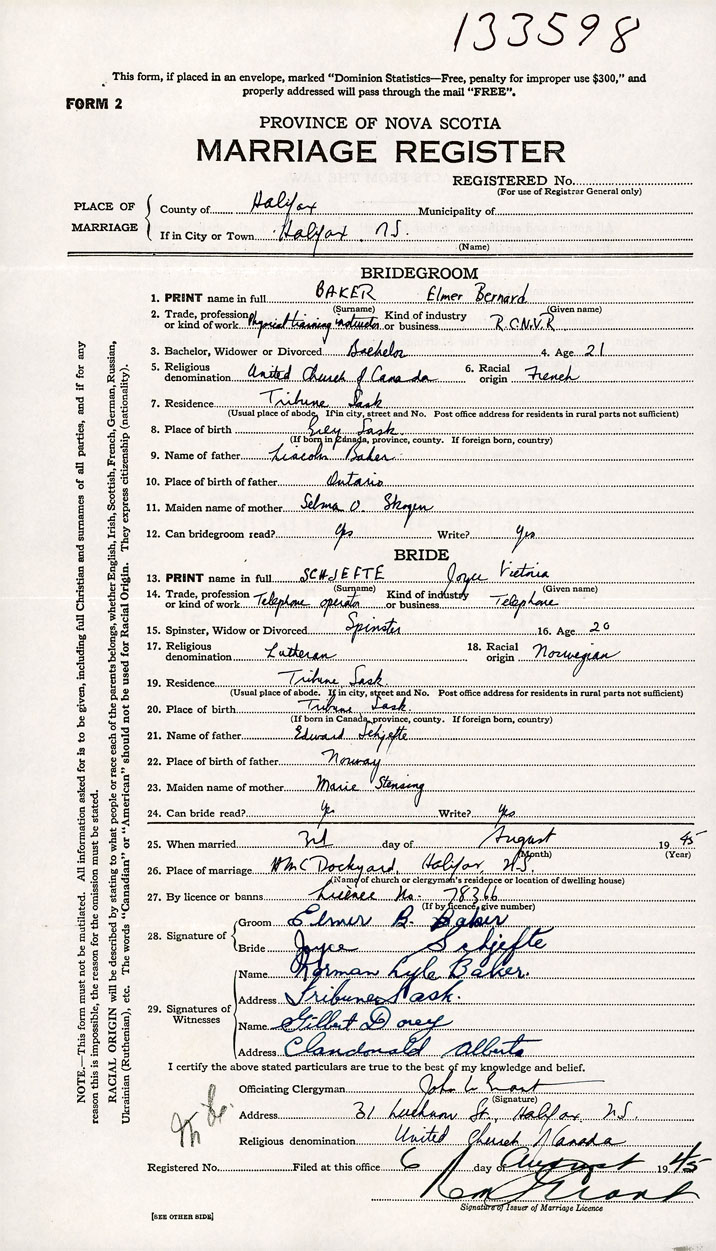 133598
This form, if placed in an envelope, marked "Dominion Statistics—Free, penalty for improper use $300," and
properly addressed will pass through the mail "FREE".
FORM 2
PROVINCE OF NOVA SCOTIA
MARRIAGE REGISTER
REGISTERED No.
(For use of Registrar General only)
PLACE OF MARRIAGE
County of Halifax Municipality of
If in City or Town Halifax N.S.
(Name)
BRIDEGROOM
1. PRINT name in full BAKER Elmer Bernard
(Surname) (Given name)
2. Trade, profession or kind of work Physical training instructor Kind of industry or business R.C.N.V.R
3. Bachelor, Widower or Divorced Bachelor 4. Age 21
5. Religious denomination United Church of Canada 6. Racial origin French
7. Residence Tribune Sask
(Usual place of abode. If in city, street and No. Post office address for residents in rural parts not sufficient)
8. Place of birth Grey Sask
(If born in Canada, province, county. If foreign born, country)
9. Name of father Lincoln Baker
10. Place of birth of father Ontario
11. Maiden name of mother Selma O. Skogen
12. Can bridegroom read? Yes Write? Yes
BRIDE
13. PRINT name in full SCHJEFTE Joyce Victoria
(Surname) (Given name)
14. Trade, profession or kind of work Telephone operator Kind of industry or business Telephone
15. Spinster, Widow or Divorced Spinster 16. Age 20
17. Religious denomination Lutheran 18. Racial origin Norwegian
19. Residence Tribune Sask
(Usual place of abode. If in city, street and No. Post office address for residents in rural parts not sufficient)
20. Place of birth Tribune Sask.
(If born in Canada, province, county. If foreign born, country)
21. Name of father Edward Schjefte
22. Place of birth of father Norway
23. Maiden name of mother Marie Stensing
24. Can bride read? Yes Write? Yes
25. When married day of August 1945
(Month) (Year)
26. Place of marriage HMC Dockyard, Halifax, N.S.
(Name of church or clergyman's residence or location of dwelling house)
27. By licence or banns Licence No. 78366
(If by licence, give number)
28. Signature of
Groom Elmer B. Baker
Bride Joyce Schjefte
29. Signatures of Witnesses
Name Norman Lyle Baker.
Address Tribune Sask.
Name Gilbert Dorey
Address Clandonald Alberta
I certify the above stated particulars are true to the best of my knowledge and belief.
Officiating Clergyman John L Grant
(Signature)
Address 31 St., Halifax N.S.
Religious denomination United Church of Canada
Registered No. Filed at this office 6 day of August 1945
Signature of Issuer of Marriage Licence
[SEE OTHER SIDE]
NOTE.—This form must not be mutilated. All information asked for is to be given, including full Christian and surnames of all parties, and if for any
reason this is impossible, the reason for the omission must be stated.
RACIAL ORIGIN will be described by stating to what people or race each of the parents belongs, whether English, Irish, Scottish, French, German, Russian,
Ukrainian (Ruthenian), etc. The words "Canadian" or "American" should not be used for Racial Origin. They express citizenship (nationality).